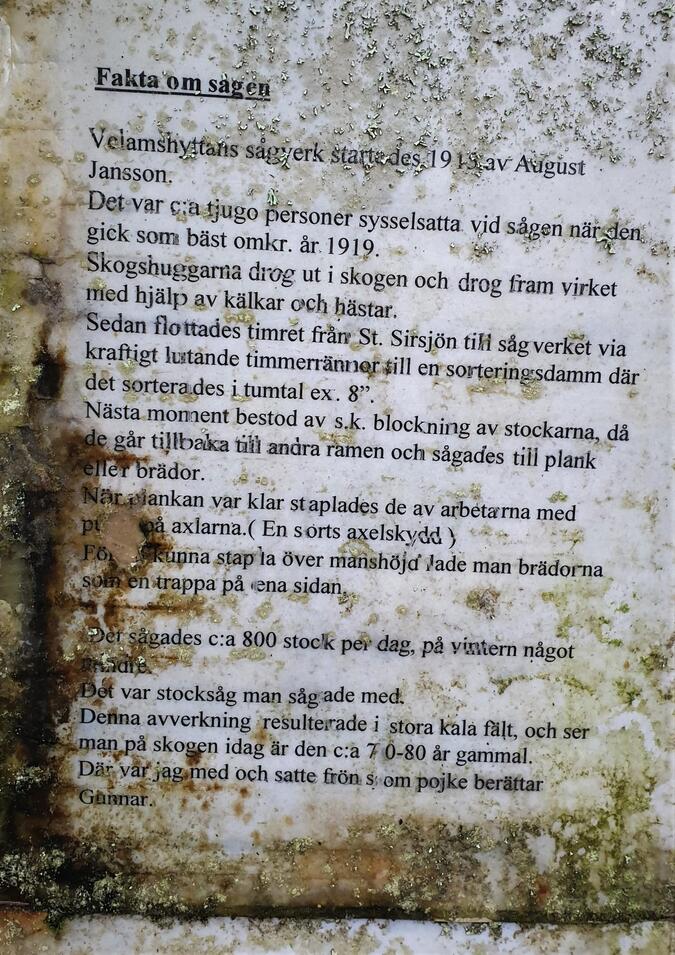 Fakta om sågen
Velamshyttans sågverk startades 1915 av August
Jansson.
Det var c:a tjugo personer sysselsatta vid sågen när den
gick som bäst omkr. år 1919.
Skogshuggarna drog ut i skogen och drog fram virket
med hjälp av kälkar och hästar.
Sedan flottades timret från St. Sirsjön till sågverket via
kraftigt lutande timmerrännor till en sorteringsdamm där
det sorterades i tumtal ex. 8”.
Nästa moment bestod av s.k. blockning av stockarna, då
de går tillbaka till andra ramen och sågades till plank
eller brädor.
När plankan var klar staplades de av arbetarna med
på axlarna.( En sorts axelskydd )
För kunna stapla över manshöjd lade man brädorna
som en trappa på ena sidan.
Det sågades c:a 800 stock per dag, på vintern något
mindre.
Det var stocksåg man sågade med.
Denna avverkning resulterade i stora kala fält, och ser
man på skogen idag är den c:a 70-80 år gammal.
Där var jag med och satte frön som pojke berättar
Gunnar.